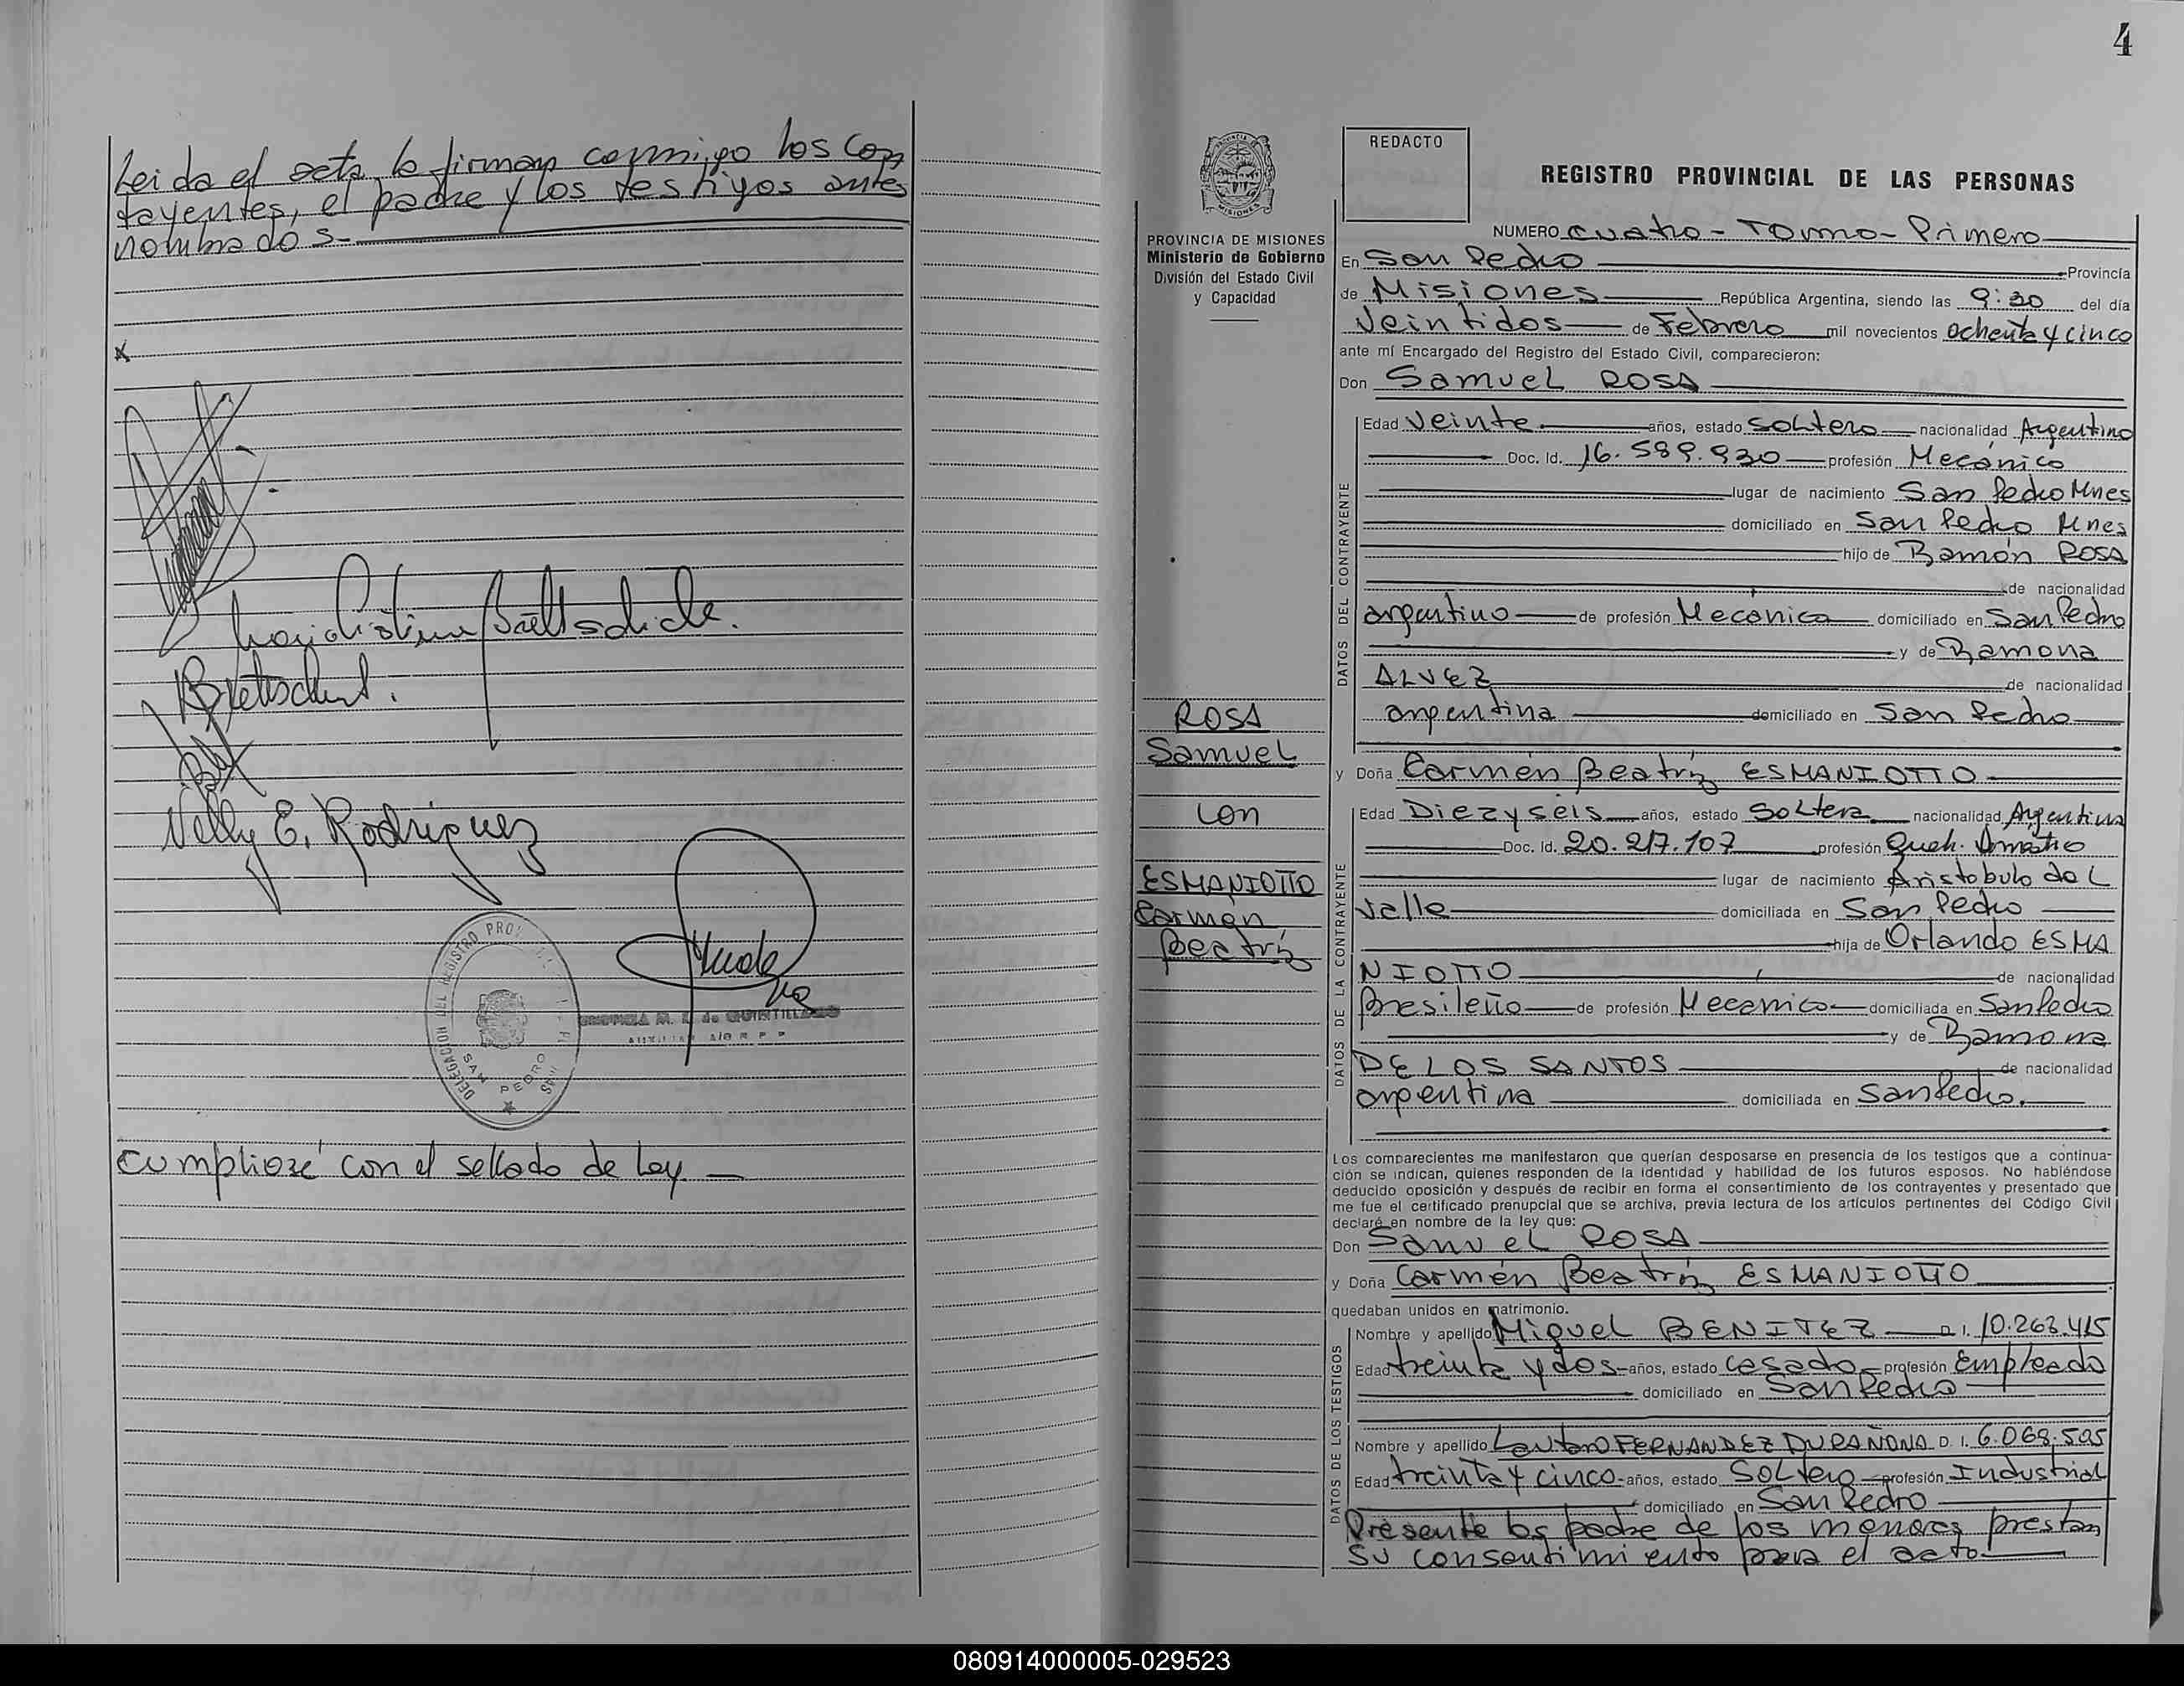 Leida el acta la firman conmigo los con
trayentes, el padre y los testigos antes
nombrados
x
Bretschnd.
Nelly E. Rodriguez
DELEGACION DEL REGISTRO PROV
SAN PEDRO
de QUINTILLANO
Cumplióse con el sellado de Ley
4
PROVINCIA DE MISIONES
Ministerio de Gobierno
División del Estado Civil
y Capacidad
ROSA
Samuel
con
ESMANIOTTO
Carmen
Beatríz
REDACTO
REGISTRO PROVINCIAL DE LAS PERSONAS
NUMERO cuatro - TOmo - Primero
En San Pedro Provincia
de Misiones República Argentina, siendo las 9:30 del día
Veintidos de Febrero mil novecientos ochenta y cinco
ante mí Encargado del Registro del Estado Civil, comparecieron:
Don Samuel ROSA
DATOS DEL CONTRAYENTE
Edad Veinte años, estado SOLtero nacionalidad Argentino
Doc. Id. 16.589.930 profesión Mecánico
lugar de nacimiento San Pedro Mnes
domiciliado en San Pedro Mnes
hijo de Ramón ROSA
de nacionalidad
argentino de profesión Mecánico domiciliado en San Pedro
y de Ramona
ALVEZ de nacionalidad
argentina domiciliado en San Pedro
y Doña Carmén Beatríz ESMANIOTTO
DATOS DE LA CONTRAYENTE
Edad Diezyséis años, estado SOLtera nacionalidad Argentina
Doc. Id. 20.217.107 profesión Queh. Doméstico
lugar de nacimiento Aristobulo del
Valle domiciliada en San Pedro
hija de Orlando ESMA
NIOTTO de nacionalidad
Brasileño de profesión Mecanico domiciliada en San Pedro
y de Ramona
DE LOS SANTOS de nacionalidad
argentina domiciliada en San Pedro.
Los comparecientes me manifestaron que querían desposarse en presencia de los testigos que a continua-
ción se indican, quienes responden de la identidad y habilidad de los futuros esposos. No habiéndose
deducido oposición y después de recibir en forma el consentimiento de los contrayentes y presentado que
me fue el certificado prenupcial que se archiva, previa lectura de los artículos pertinentes del Código Civil
declaré en nombre de la ley que:
Don Samuel ROSA
y Doña Carmén Beatríz ESMANIOTTO
quedaban unidos en matrimonio.
DATOS DE LOS TESTIGOS
Nombre y apellido Miguel BENITEZ D.I. 10.263.415
Edad treinta y dos años, estado casado profesión Empleado
domiciliado en San Pedro
Nombre y apellido Lautaro FERNANDEZ DURAÑONA D.I. 6.068.595
Edad treinta y cinco años, estado SOLtero profesión Industrial
domiciliado en San Pedro
Presente los padre de los menores prestan
su consentimiento para el acto
080914000005-029523